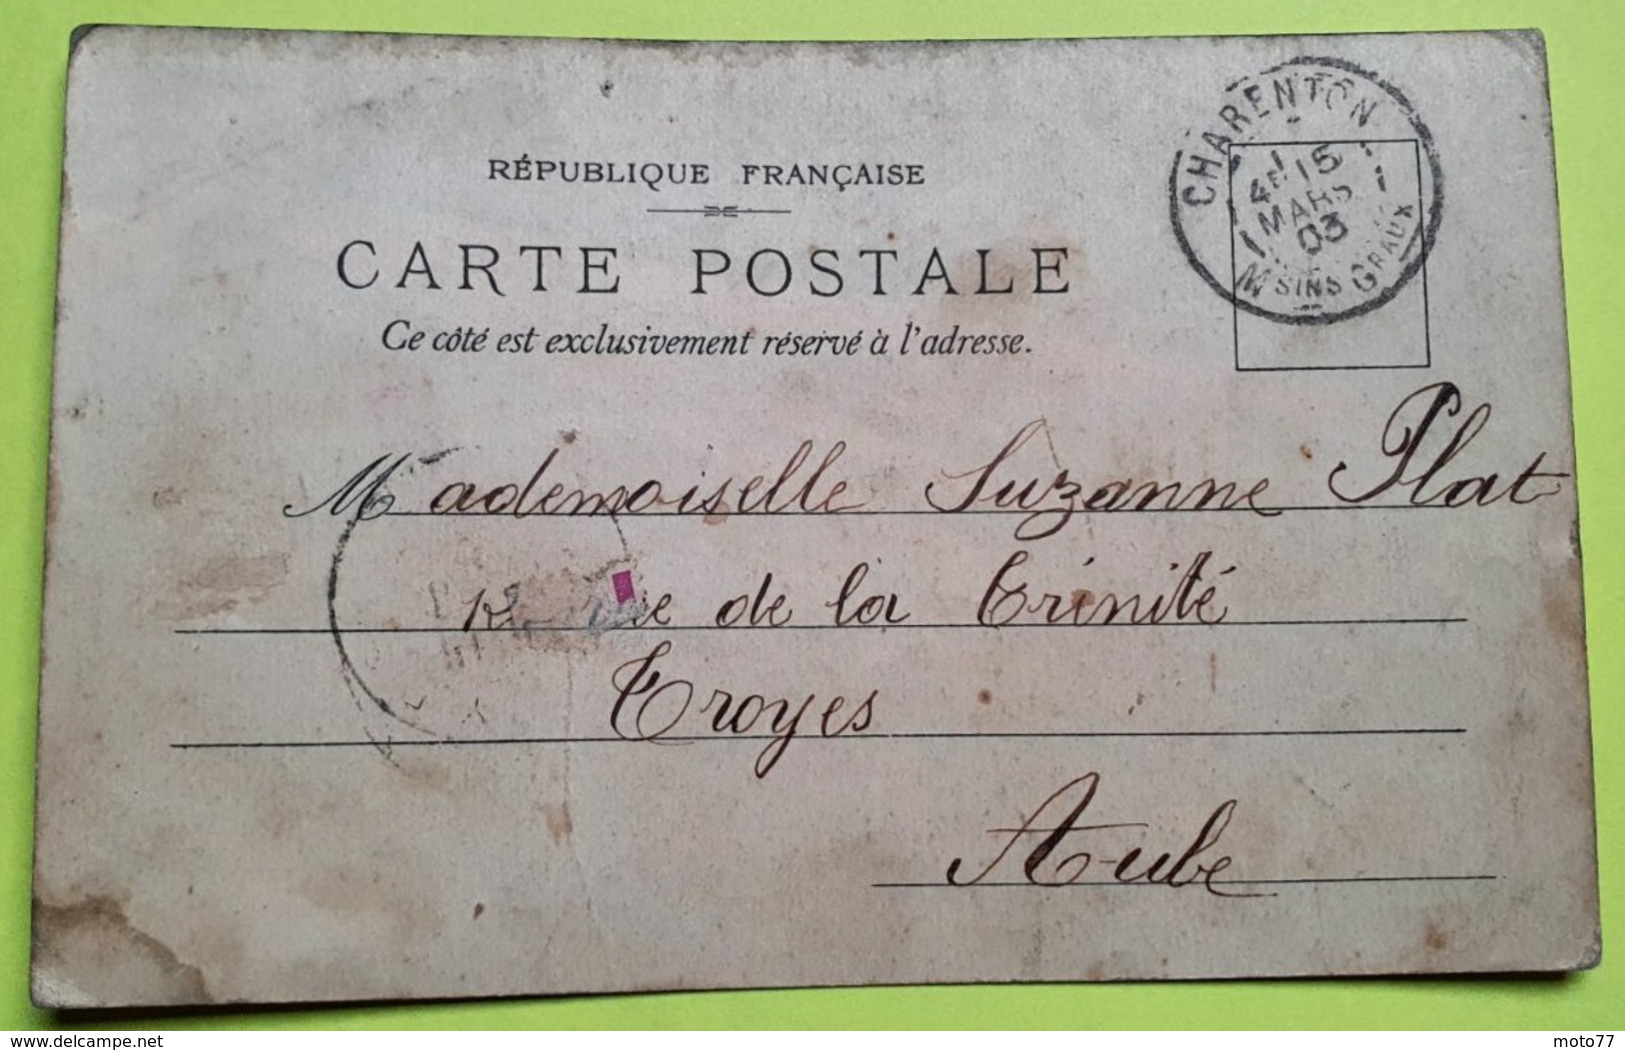 RÉPUBLIQUE FRANÇAISE
CARTE POSTALE
Ce côté est exclusivement réservé à l'adresse.
CHARENTON
4E 15
MARS
03
MSINS GRAUX
Mademoiselle Suzanne Plat
de la Trinité
Troyes
Aube
delcampe.net
moto77